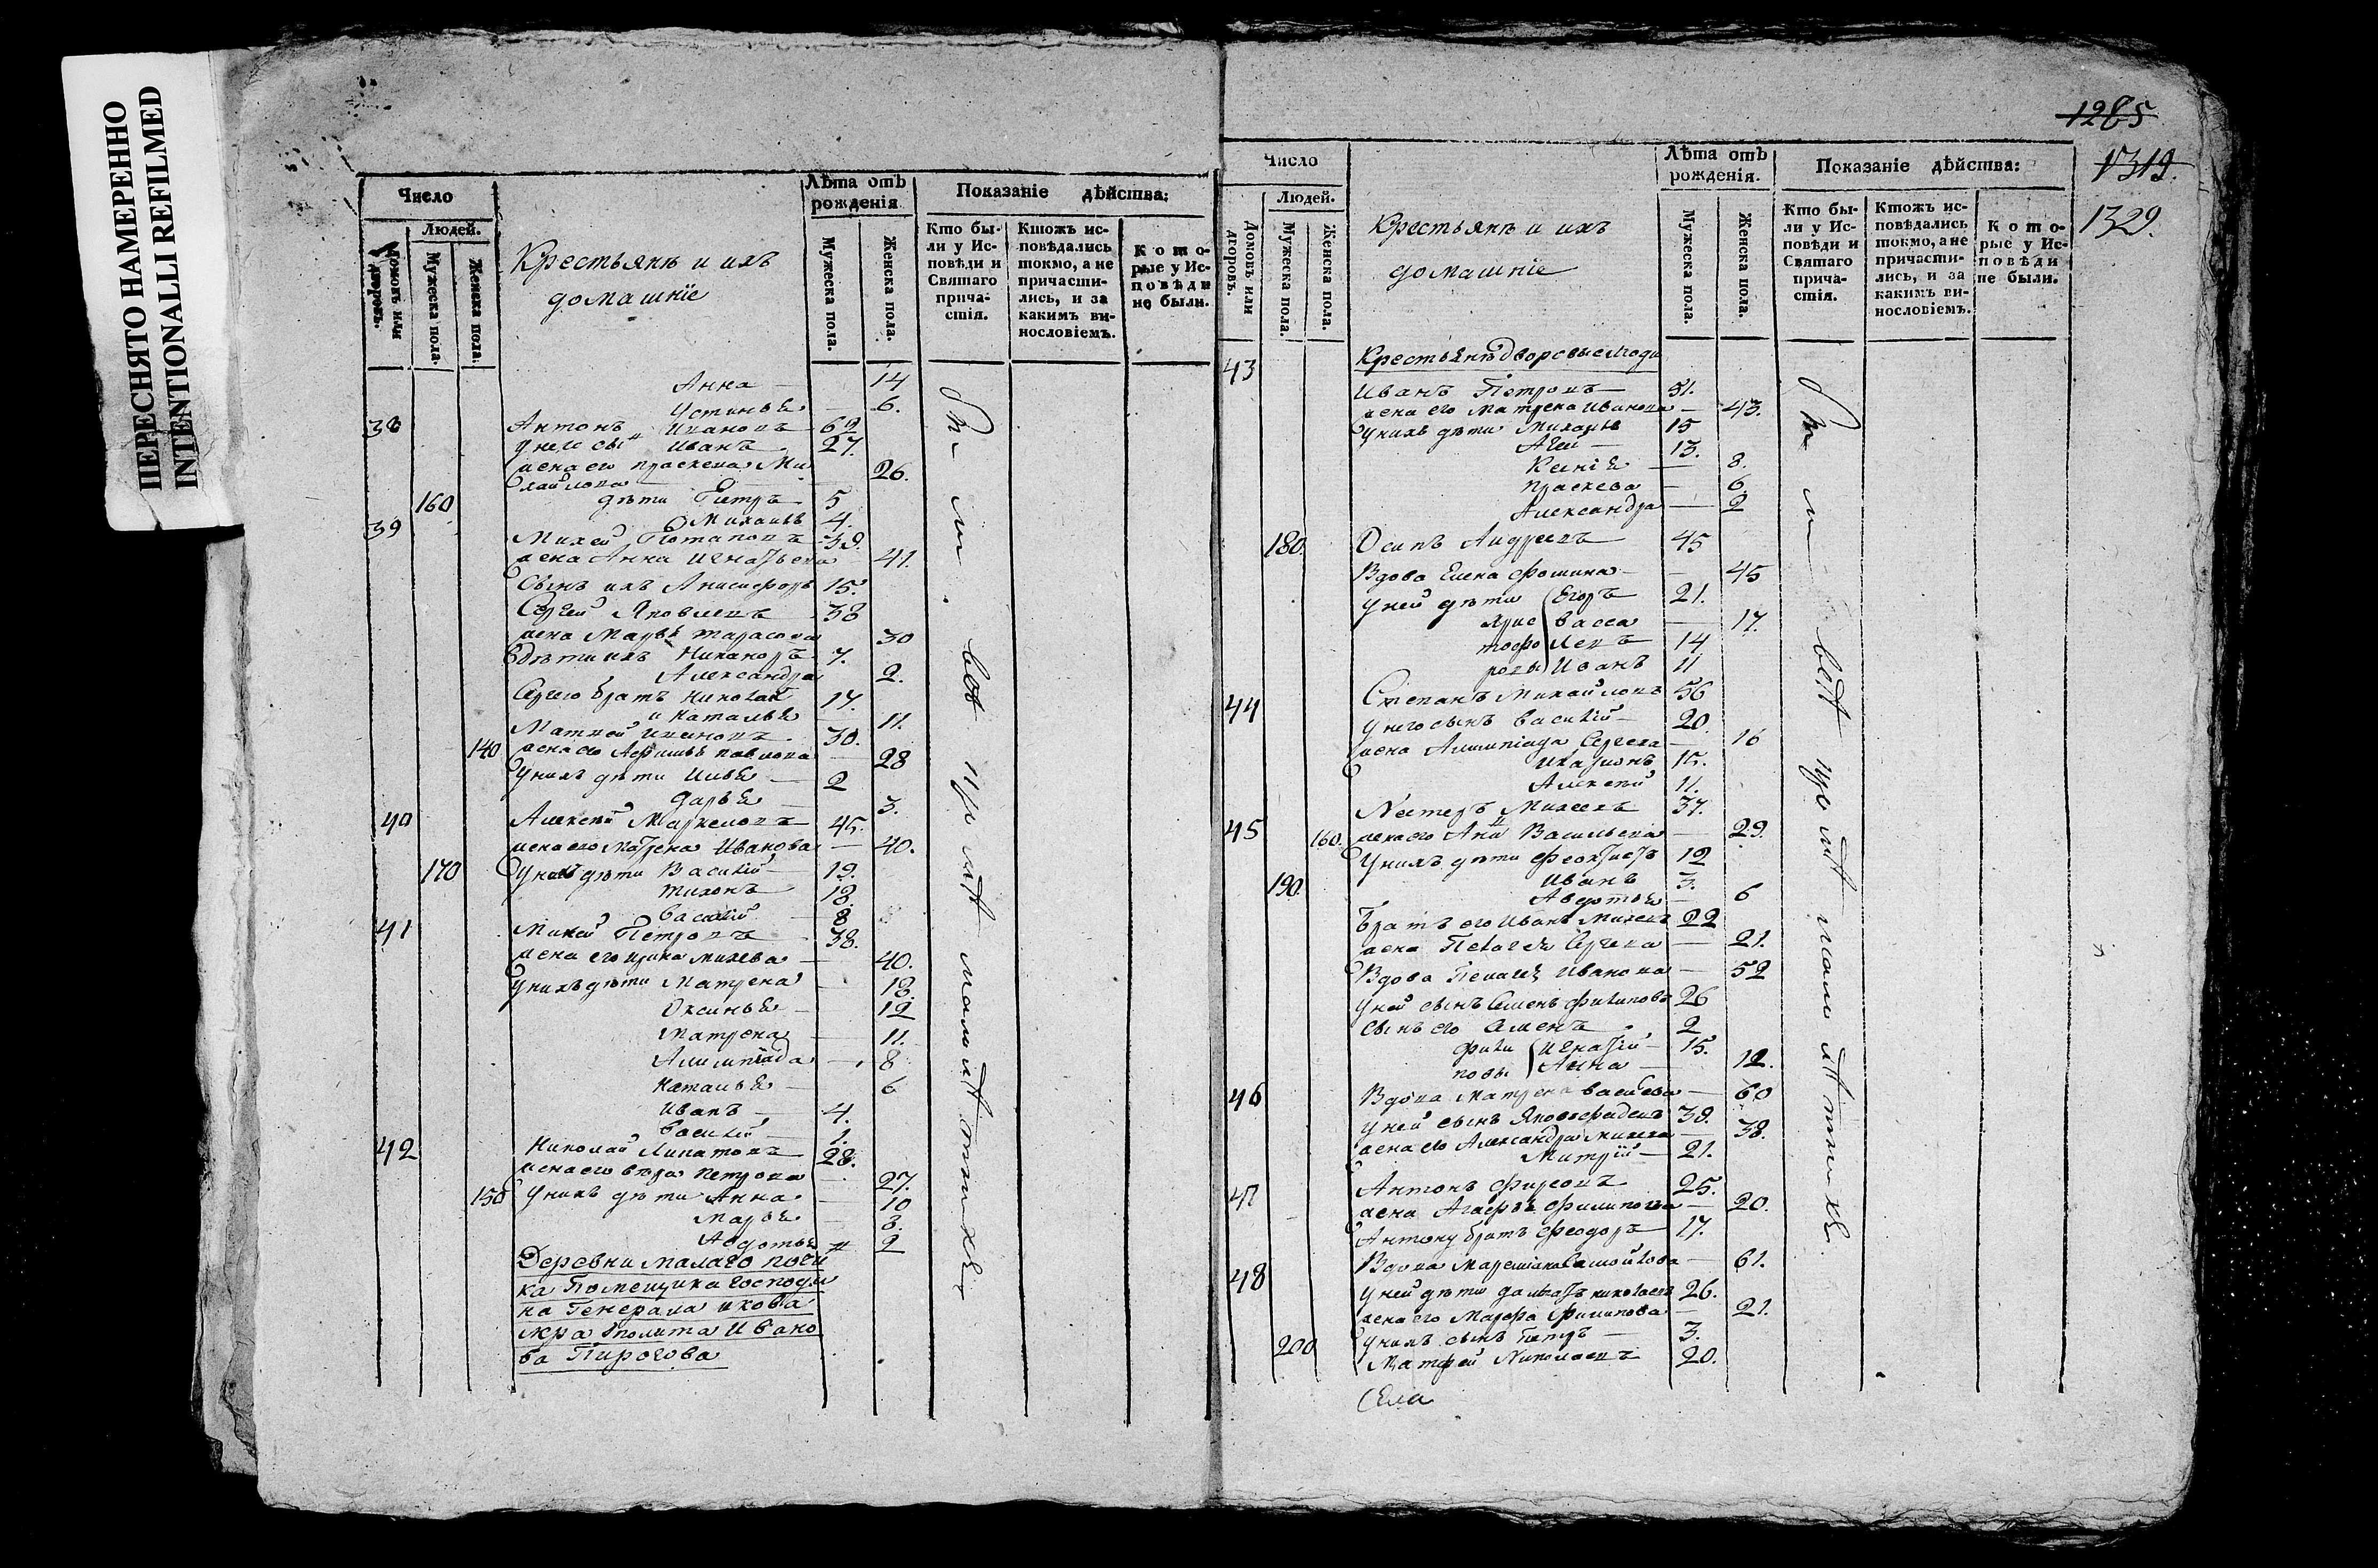 ПЕРЕСНЯТО НАМЕРЕННО
INTENTIONALLI REFILMED
Число
Людей.
Домовъ или дворовъ.
Мужеска пола.
Женска пола.
Крестьянъ и ихъ
домашніе
Лѣта отъ
рожденія
Мужеска пола.
Женска пола.
Показаніе дѣйства:
Кто бы-
ли у Ис-
повѣди и
Святаго
прича-
стія.
Ктожъ ис-
повѣдались
токмо, а не
причасти-
лись, и за
какимъ ви-
нословіемъ.
Кото-
рые у Ис-
повѣди
не были.
Анна 14
Устинья 6.
38 Антонъ Ивановъ 62
у нево сынъ Иванъ 27.
жена его Праскева Ми
хайлова 26.
160 дѣти Петръ 5
Михаилъ 4.
39 Михей Потаповъ 39.
жена Анна Игнатьева 41.
Сынъ ихъ Анисифоръ 15.
Сергей Яковлевъ 38
жена Марья Тарасова 30
дѣти ихъ Никаноръ 7.
Александра 2.
Сергею братъ Николай 17.
и Наталья 11.
Матвей Ивановъ 30.
140 жена его Афимья Павлова 28
у нихъ дѣти Илья 2
Дарья 3.
40 Алексей Маркеловъ 45.
жена его Матрена Иванова 40.
170 у нихъ дѣти Василій 19.
Тихонъ 18.
Василій 8
41 Михей Петровъ 38.
жена его Ирина Михева 40.
у нихъ дѣти Матрена 18.
Оксинья 12
Матрена 11.
Алимпіада 8
Наталья 6
Иванъ 4.
Василій 1.
42 Николай Липатовъ 28.
жена его Вера Петрова 27.
150 у нихъ дѣти Анна 10
Марья 3.
Авдотья 2
Деревни Малаго Почин
ка Помещика Господи
на Генерала
Иполита Ивано
ва Пирогова
1285
1319.
1329.
Число
Людей.
Домовъ или дворовъ.
Мужеска пола.
Женска пола.
Крестьянъ и ихъ
домашніе
Лѣта отъ
рожденія.
Мужеска пола.
Женска пола.
Показаніе дѣйства:
Кто бы-
ли у Ис-
повѣди и
Святаго
прича-
стія.
Ктожъ ис-
повѣдались
токмо, а не
причасти-
лись, и за
какимъ ви-
нословіемъ.
Кото-
рые у Ис-
повѣди
не были.
43 Крестьянѣ Дворовые Люди
Иванъ Петровъ 51.
жена его Матрена Иванова 43.
у нихъ дѣти Михаилъ 15
Агей 13.
Ксенія 8.
Праскева 6
Александра 2
180. Осипъ Андреевъ 45
Вдова Елена Фомина 45
у ней дѣти Егоръ 21.
Хрис Васса 17.
тофо Левъ 14
ровы Иванъ 11
44 Степанъ Михайловъ 56
у него сынъ Василій 20.
жена Алимпіада Сергева 16
Иларіонъ 15.
Алексей 11.
Нестеръ Михеевъ 37.
45 160. жена его Анна Васильева 29.
у нихъ дѣти Феоктистъ 12
190. Иванъ 3.
Авдотья 6
Братъ его Иванъ Михевъ 22
жена Пелагея Сергева 21.
Вдова Пелагея Иванова 52
у ней сынъ Семенъ Филиповъ 26
Сынъ его Семенъ 2
Фили Игнатій 15.
повы Анна 12.
46 Вдова Матрена Васильева 60
у ней сынъ Яковъ Фадеевъ 39.
жена его Александра Михева 38.
Митрій 21.
47 Антонъ Фирсовъ 25.
жена Агафья Филипова 20.
Антону братъ Феодоръ 17.
48 Вдова Маремьяна Самойлова 61.
у ней дѣти Николаевъ 26.
жена его Марфа Филипова 21.
200 у нихъ сынъ Петръ 3.
Матфей Николаевъ 20.
Села